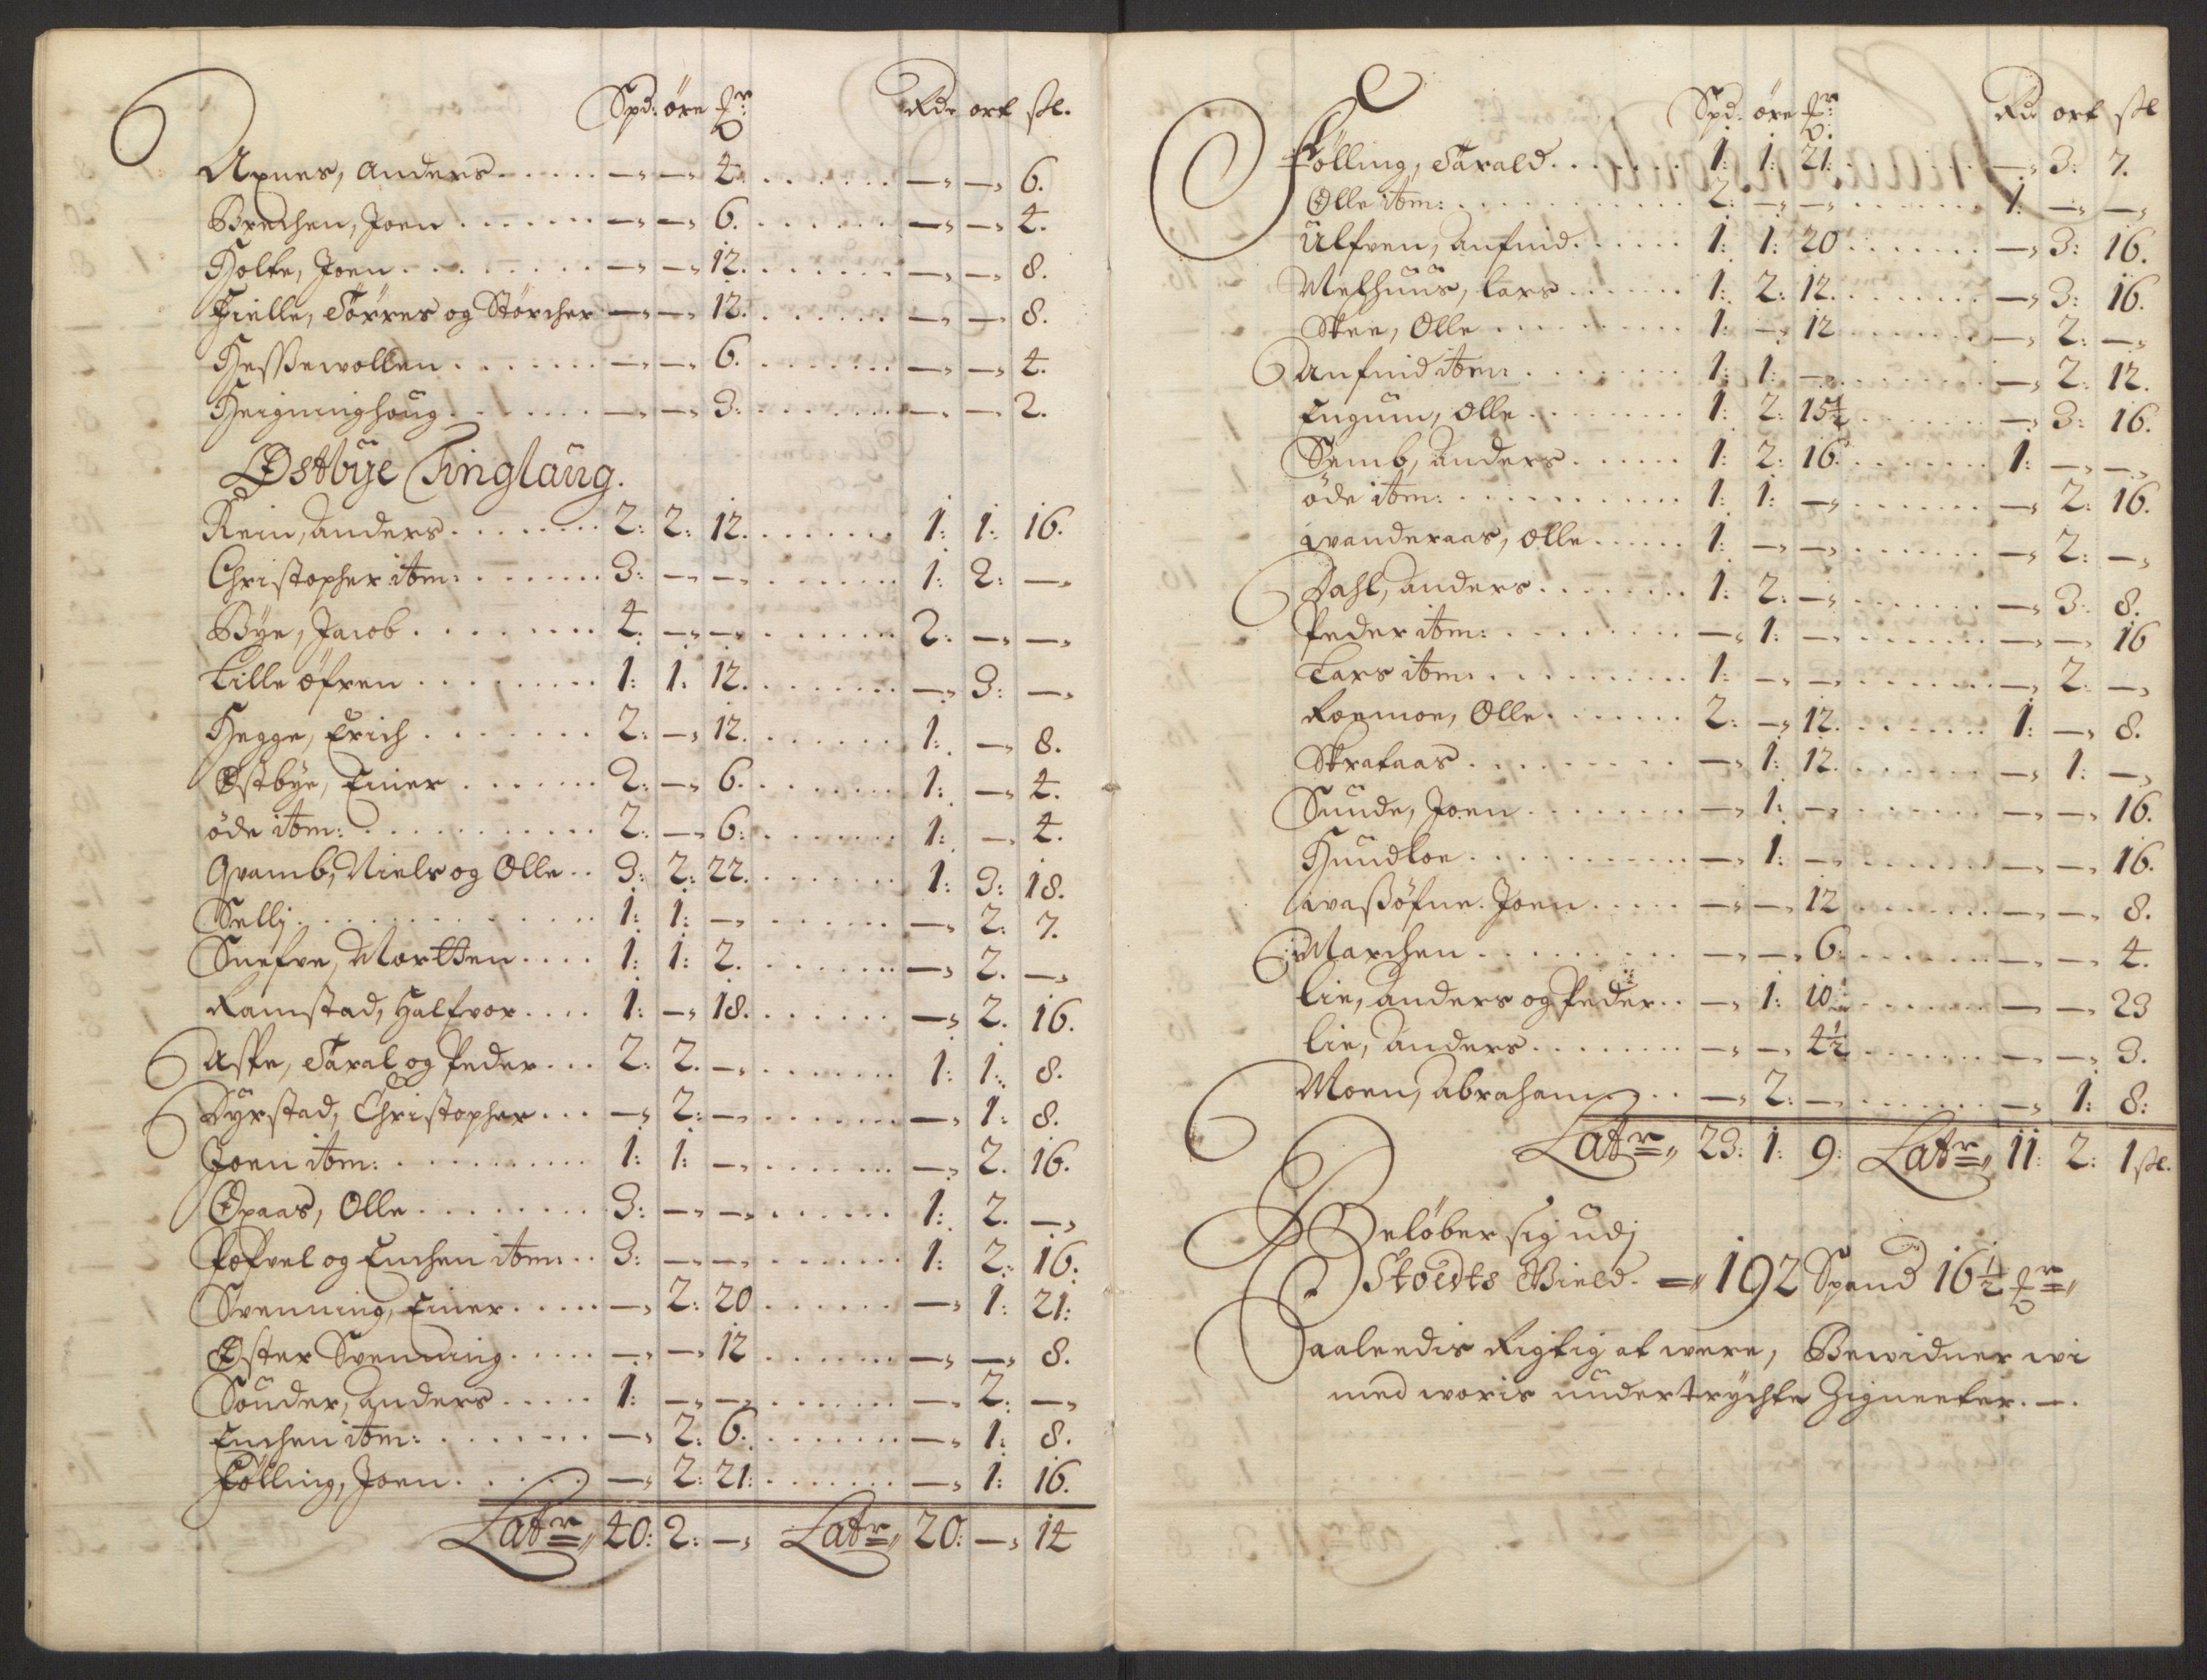 Spd: öre Ↄr: Rdr ort sk.
Axnes, Anders . . . . . — — 4. . . . . . . — — 6.
Brechen, Joen . . . . . . — — 6. . . . . . . — — 4.
Holte, Joen . . . . . . . . — — 12. . . . . . . — — 8.
Fielle, Törres og Störcher — — 12. . . . . . . — — 8.
Hessewollen . . . . . . — — 6. . . . . . . — — 4.
Heigninghoug . . . . . . — — 3. . . . . . . — — 2.
Østbye Tinglaug.
Rein, Anders . . . . . . . 2: 2: 12. . . . . . . 1: 1: 16.
Christopher itm: . . . . . . 3: — — . . . . . . . 1: 2: —
Bye, Jacob . . . . . . . . 4. — — . . . . . . . 2: — —
Lille öfren . . . . . . . . . 1: 1. 12. . . . . . . — 3: —
Hegge, Erich . . . . . . . 2: — 12. . . . . . . 1: — 8.
Østbye, Einer . . . . . . 2: — 6. . . . . . . 1: — 4.
öde itm: . . . . . . . . . . 2: — 6: . . . . . . 1: — 4.
Qvamb, Niels og Olle . . 3: 2: 22. . . . . . . 1: 3: 18.
Sellj . . . . . . . . . . . . . 1: 1: — . . . . . . — 2: 7.
Snefve, Morthen . . . . 1: 1: 2. . . . . . . — 2. —
Ramstad, Halfvor . . . . 1: — 18. . . . . . . — 2. 16.
Aspe, Taral og Peder . . . 2: 2. — . . . . . . . 1: 1: 8.
Dyrstad, Christopher . . . — 2: — . . . . . . . — 1: 8.
Joen itm: . . . . . . . . . 1: 1: — . . . . . . . — 2. 16.
Opaas, Olle . . . . . . . . 3: — — . . . . . . . 1: 2. —
Pofvel og Enchen itm: . . 3: — — . . . . . . . 1: 2: 16.
Svenning, Einer . . . . . — 2: 20 . . . . . . — 1: 21:
Øster Svenning . . . . . — — 12 . . . . . . . — — 8.
Souder, Anders . . . . . 1: — — . . . . . . . — 2: —
Enchen itm: . . . . . . . — 2: 6: . . . . . . . — 1: 8.
Følling, Joen . . . . . — 2: 21: . . . . . . . — 1: 16.
Latr 40: 2: — Latr 20: — 14
Spd: öre Ↄr: Rd ort sk
Følling, Tarald . . . . . . . 1: 1: 21. . . . . . . — 3: 7.
Olle itm: . . . . . . . . . . . 2: — — . . . . . . . 1: — —
Ulfven, Anfind . . . . . . 1: 1: 20 . . . . . . . — 3: 16.
Melhuus, Lars . . . . . . 1: 2: 12. . . . . . . — 3: 16.
Skee, Olle . . . . . . . . . 1: — 12 . . . . . . . — 2: —
Anfind itm: . . . . . . . . 1: 1: — . . . . . . . — 2: 12.
Engum, Olle . . . . . . . . 1: 2: 15½ . . . . . . — 3: 16.
Semb, Anders . . . . . . 1: 2: 16. . . . . . . 1: — —
öde itm: . . . . . . . . . . 1: 1: — . . . . . . . — 2: 16.
qvanderaas, Olle . . . . . 1: — — . . . . . . . — 2: —
Dahl, Anders . . . . . . . 1: 2: — . . . . . . . — 3: 8.
Peder itm: . . . . . . . . — 1: — . . . . . . . — — 16
Lars itm: . . . . . . . . . . 1: — — . . . . . . . — 2: —
Roemoe, Olle . . . . . . . 2: — 12. . . . . . . 1: — 8.
Skrataas . . . . . . . . . — 1: 12. . . . . . . — 1: —
Sunde, Joen . . . . . . . . — 1: — . . . . . . . — — 16.
Hundloe . . . . . . . . . . — 1: — . . . . . . . — — 16.
qvassöfne. Joen . . . . . — — 12 . . . . . . . — — 8.
Marchen . . . . . . . . . — — 6: . . . . . . . — — 4.
Lie, Anders og Peder . . — 1: 10½ . . . . . . . — — 23
Lie, Anders . . . . . . . — — 4½ . . . . . . . — — 3.
Moen, Abraham . . — 2: — . . . . . . . — 1: 8:
Latr 23: 1: 9: Latr 11: 2: 1 sk.
Beløber sig udj
Stoedts Gield. 192 Spand 16½ Ↄr
Saaledis Rigtig at were, Bewidner wi
med woris undertrychte Zigneeter.